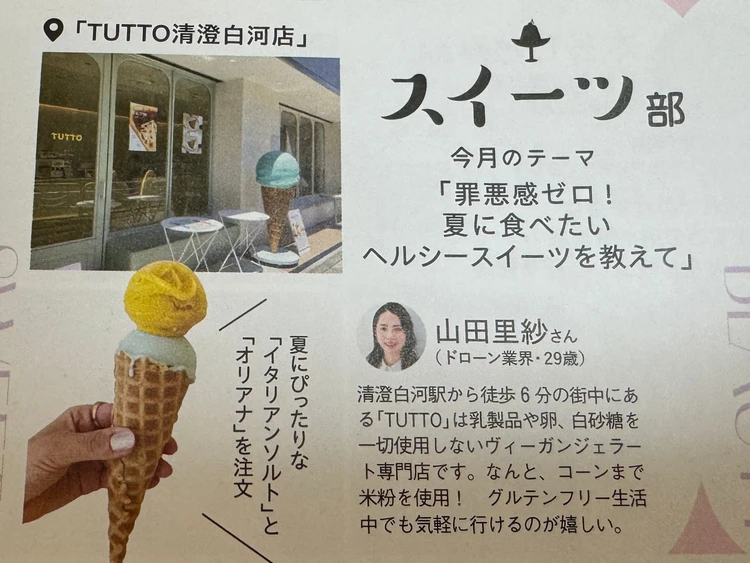 「TUTTO清澄白河店」
TUTTO
スイーツ部
今月のテーマ
「罪悪感ゼロ!
夏に食べたい
ヘルシースイーツを教えて」
夏にぴったりな
「イタリアンソルト」と
「オリアナ」を注文
山田里紗さん
(ドローン業界・29歳)
清澄白河駅から徒歩6分の街中にあ
る「TUTTO」は乳製品や卵、白砂糖を
一切使用しないヴィーガンジェラー
ト専門店です。なんと、コーンまで
米粉を使用! グルテンフリー生活
中でも気軽に行けるのが嬉しい。